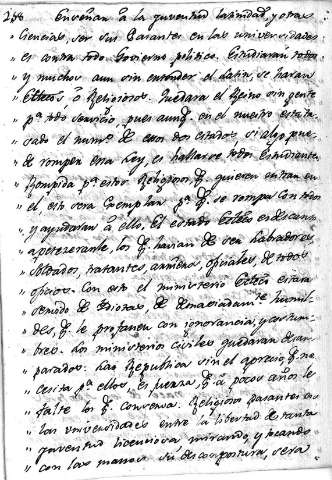 248 Enseñan à la juventud latinidad, y otras
" Ciencias, ser sus Pasantes en las universidades
" es contra todo Govierno politico. Estudiaràn todos
" y muchos aun sin entender el latin, se haràn
" Ecĉcos ò Religiosos. Quedara el Reino sin gente
" pª todo servicio, pues aunq̃ en el nuestro está ta-
" sado el numº de esos dos estados, si algo pue-
" de romper esta Ley, es hallarse todos Estudiantes
" Rompida pª estos Religiosos q̃ quieren entrar en
" el, esto serà exemplar pª q̃ se rompa con todos
" y ayudaràn à ello. El estado Ecĉco es descanso
" apetezeranle, los q̃ havian de ser labradores,
" Soldados, tratantes, oficiales de todos
" oficios. Con esto el ministerio Ecĉco estarà
" servido de Idiotas, de demasiadamte humil-
" des, q̃ le profanen con ignorancia, y costum-
" bres. Los ministerios civiles quedaràn desam-
" parados. Las Republica sin el aprecio q̃ ne-
" cesita pª ellos, es fuerza q̃ à pocos años le
" falte los q̃ conserva. Religiosos pasantes en
" las universidades entre la libertad de tanta
" juventud licenciosa mirando, y tocando
" con las manos su descompostura, serà